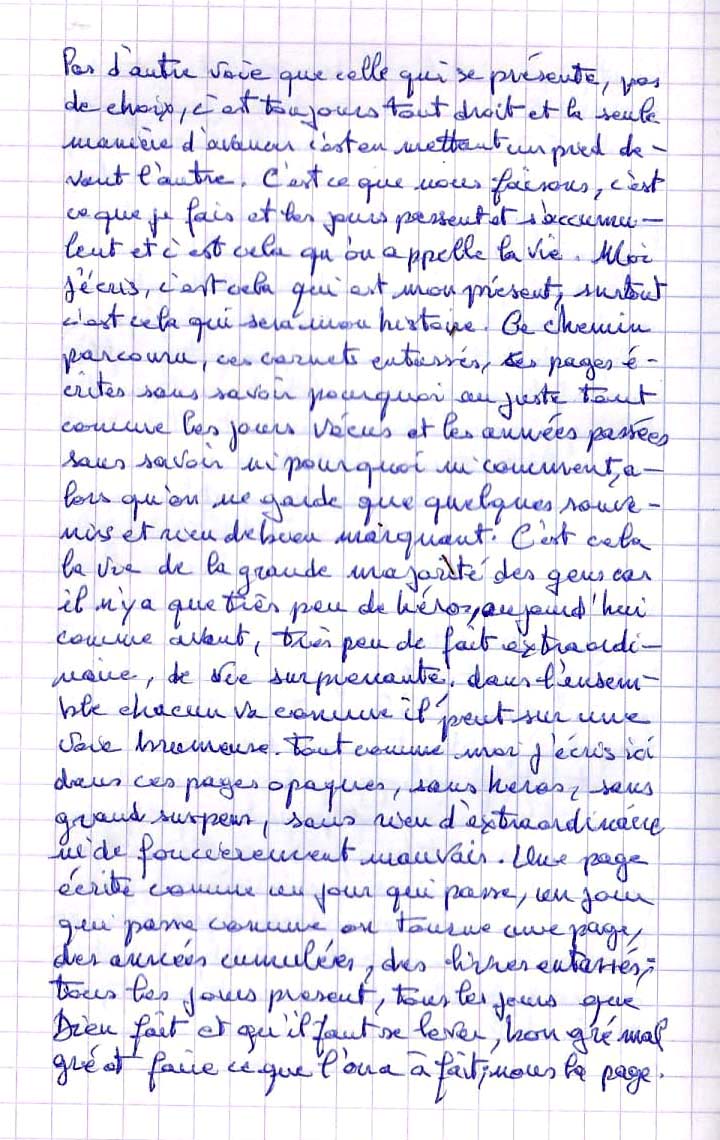 Pas d'autre voie que celle qui se présente, pas
de choix, c'est toujours tout droit et la seule
manière d'avancer c'est en mettant un pied de-
vant l'autre. C'est ce que nous faisons, c'est
ce que je fais et les jours passent et s'accumu-
lent et c'est cela qu'on appelle la vie. Moi
j'écris, c'est cela qui est mon présent, surtout
c'est cela qui sera mon histoire. Ce chemin
parcouru, ces carnets entassés, les pages é-
crites sans savoir pourquoi au juste tout
comme les jours vécus et les années passées
sans savoir ni pourquoi ni comment, a-
lors qu'on ne garde que quelques souve-
nirs et rien de bien marquant. C'est cela
la vie de la grande majorité des gens car
il n'y a que très peu de héros, aujourd'hui
comme avant, très peu de fait extraordi-
naire, de vie surprenante. dans l'ensem-
ble chacun va comme il peut sur une
voie brumeuse. tout comme moi j'écris ici
dans ces pages opaques, sans heros, sans
grand suspens, sans rien d'extraordinaire
ni de foncièrement mauvais. Une page
écrite comme un jour qui passe, un jour
qui passe comme on tourne une page,
des années cumulées, des livres entassés,
tous les jours présent, tous les jours que
Dieu fait et qu'il faut se lever, bon gré mal
gré et faire ce que l'on a à fait; nous la page.